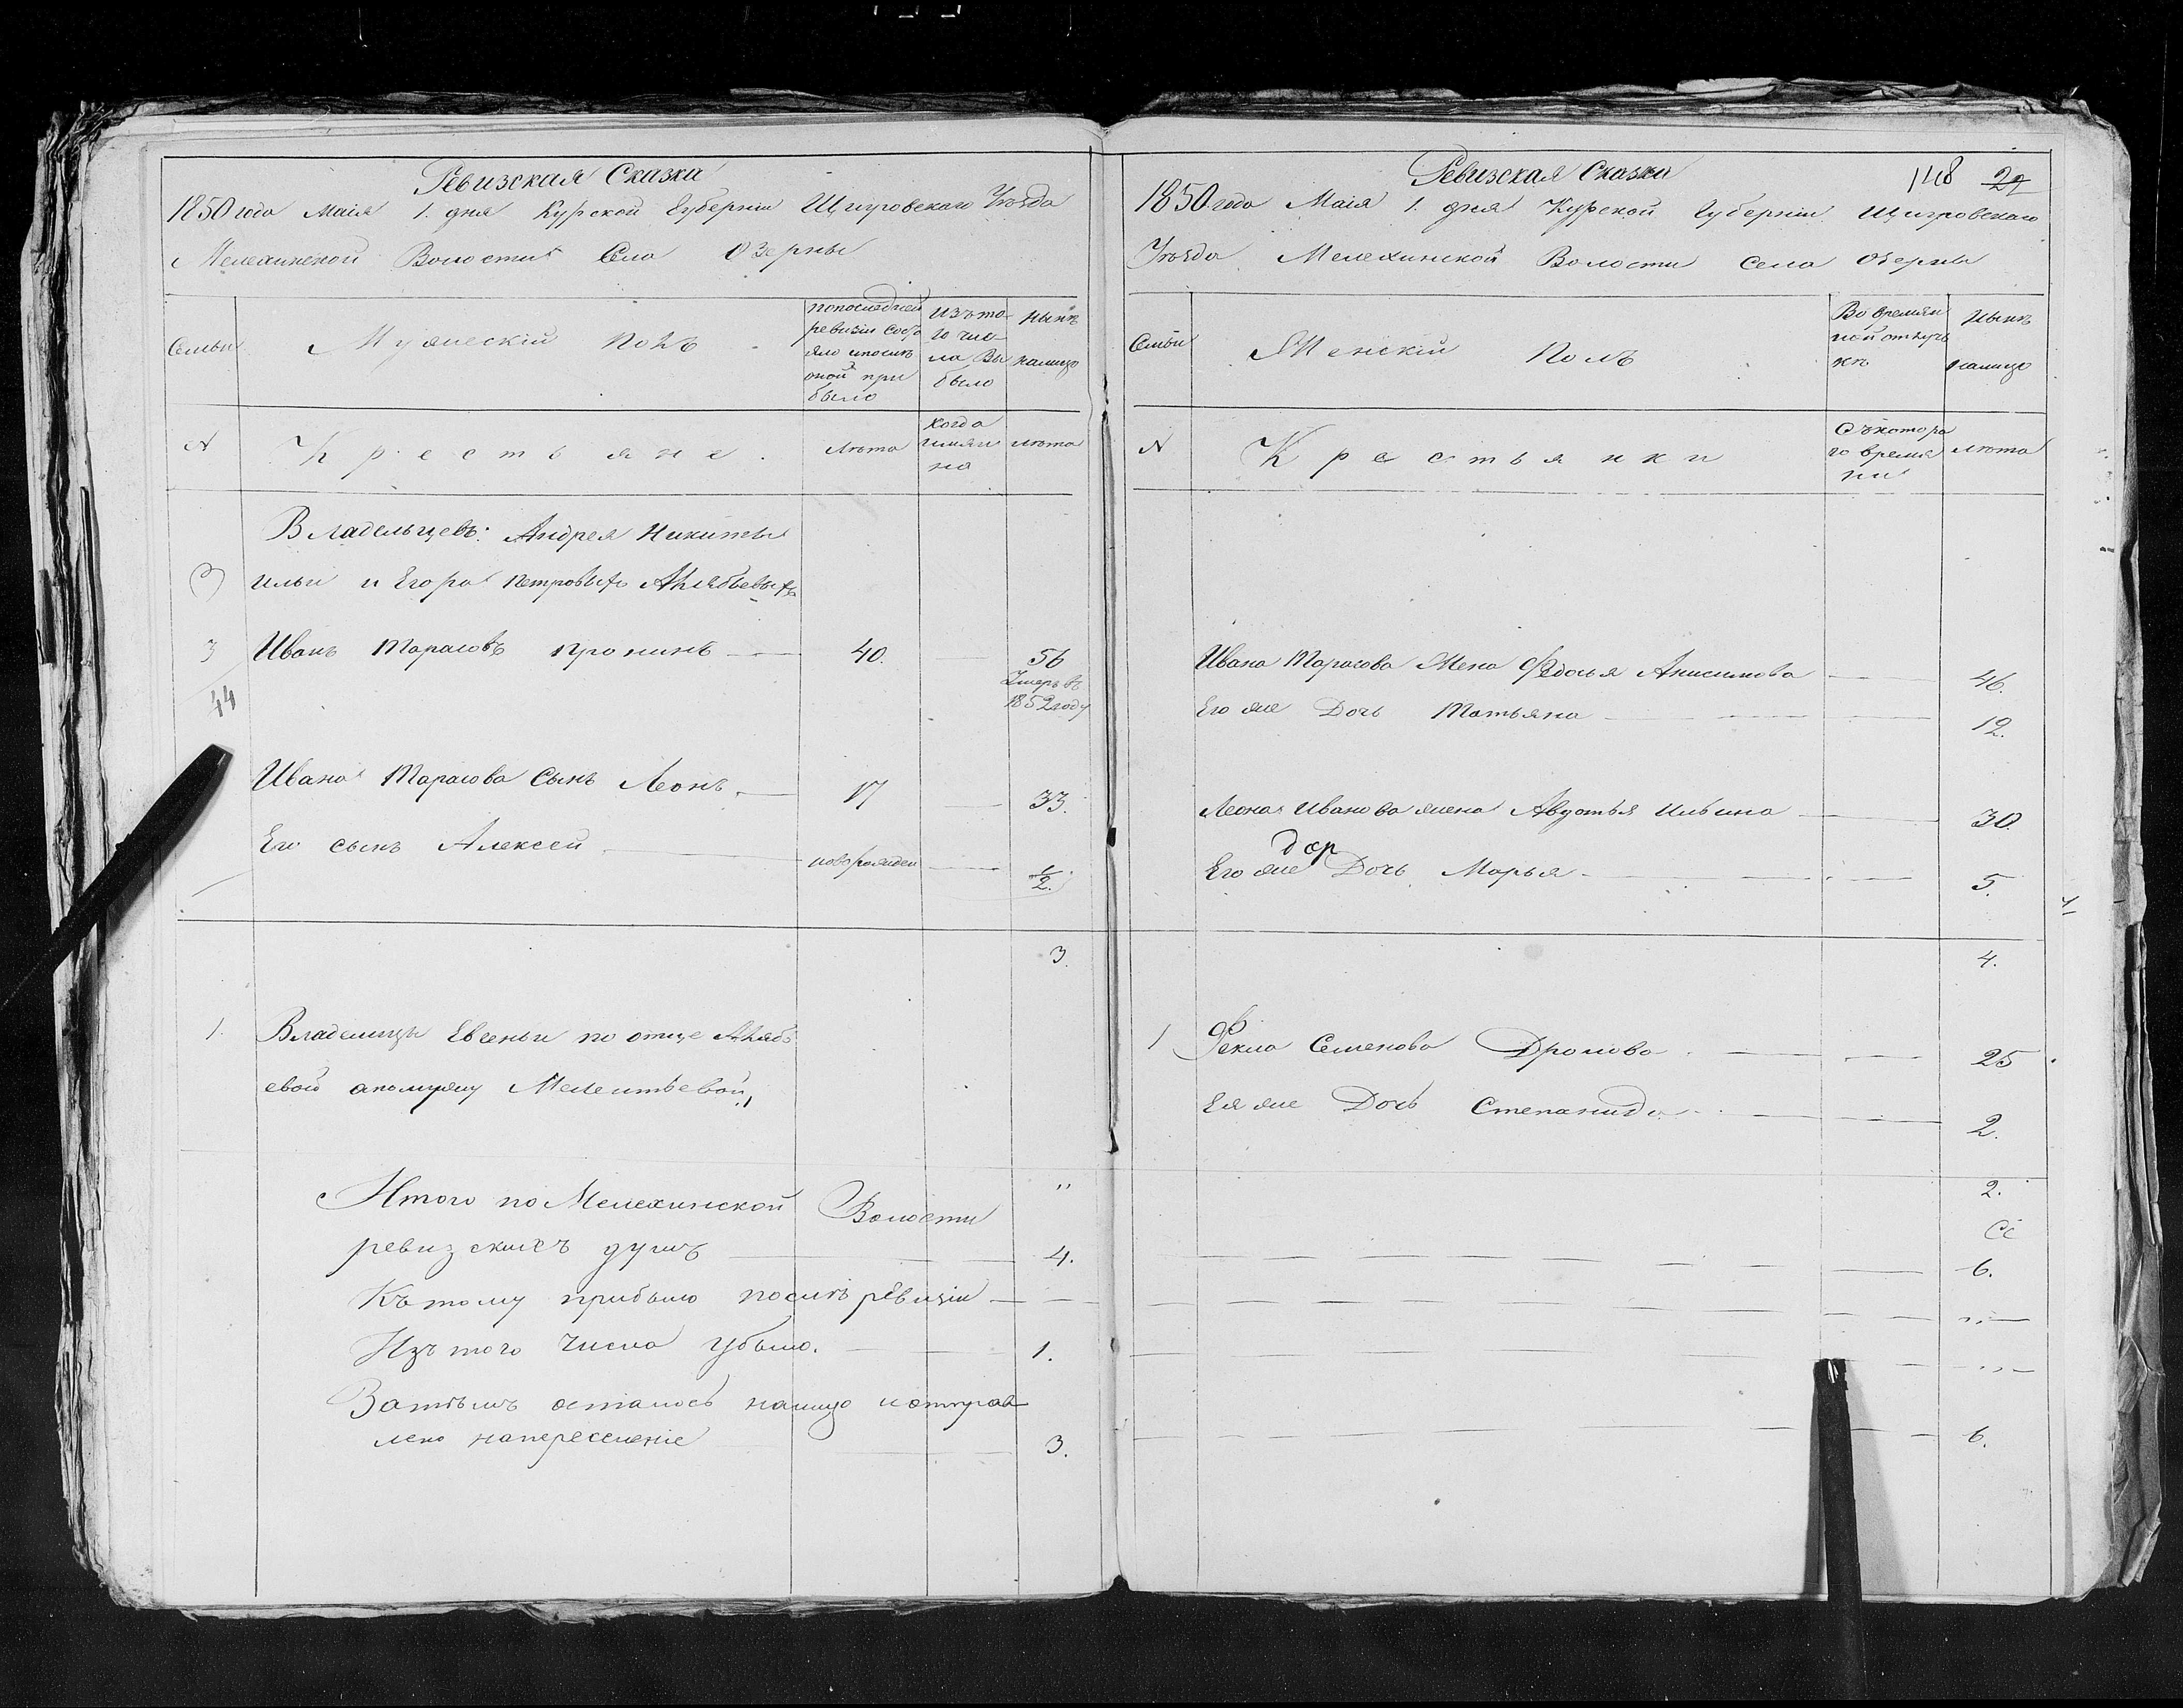 Ревизская Сказка
1850 года Маія 1. дня Курской Губерніи Щигровскаго Уѣзда
Мелехинской Волости Села Озерны
Семьи
Мужескій полъ
попоследней
ревизіи состо
яло ипослѣ
оной при
было
изъ то
го чис
ла Вы
было
нынѣ
налицо
N
Крестьяне.
лѣта
когда
имян
но
лѣта
Владельцевъ: Андрея Никиты
ильи и Егора Петровыхъ Анябьевыхъ
3 Иванъ Тарасовъ пронинъ 40. 56
Умеръ въ
1852 году
44
Ивана Тарасова Сынъ Леонъ 17 33.
Его сынъ Алексей новорожден ½.
3.
1. Владелицы Евгеньи по отце Аняб
евой апомужу Мелентьевой
"
Итого по Мелехинской Волости
ревизскихъ душъ 4.
Къ тому прибыло послѣ ревизіи
Изъ того числа убыло. 1.
Затѣмъ осталось налицо иотправ
лено напереселеніе 3.
Ревизская Сказка
148 29
1850 года Маія 1. дня Курской Губерніи Щигровскаго
Уѣзда Мелехинской Волости села Озерны
Семьи
Женскій полъ
Во времян
ной отлуч
кѣ
нынѣ
налицо
N
Крестьянки
Съкотора
го время
ни
лѣта
Ивана Тарасова Жена Федосья Анисимова 46.
Его же Дочь Татьяна 12.
Леона Иванова жена Авдотья Ильина 30.
Его же Дочь Марья 5.
4.
1 Фекла Семенова Дромова 25
Ея же Дочь Степанида 2.
2.
6.
6.